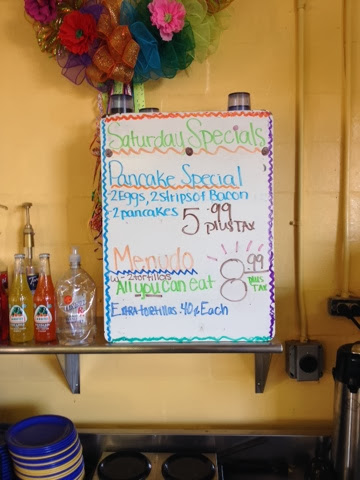 Saturday Specials
Pancake Special
2 Eggs, 2 strips of Bacon
2 pancakes 5.99 plus TAX
Menudo
w- 2 tortillas
All you can eat 8.99 plus TAX
Extra tortillas .40¢ Each